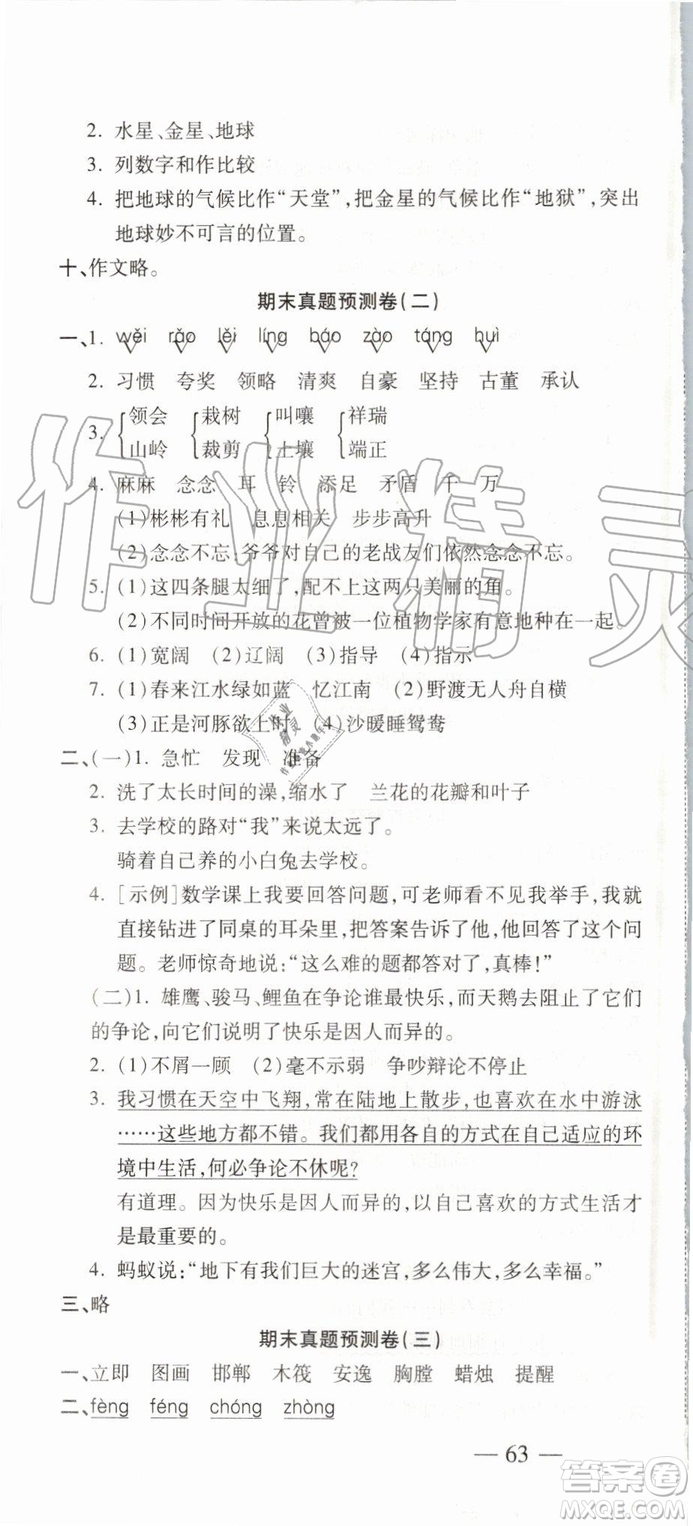 2. 水星、金星、地球
3. 列数字和作比较
4. 把地球的气候比作“天堂”,把金星的气候比作“地狱”,突出
地球妙不可言的位置。
十、作文略。
期末真题预测卷(二)
一、1. wěi rǎo lěi líng báo zào táng huì
2. 习惯 夸奖 领略 清爽 自豪 坚持 古董 承认
3. 领会 栽树 叫嚷 祥瑞
山岭 裁剪 土壤 端正
4. 麻麻 念念 耳 铃 添足 矛盾 千 万
(1)彬彬有礼 息息相关 步步高升
(2)念念不忘:爷爷对自己的老战友们依然念念不忘。
5. (1)这四条腿太细了,配不上这两只美丽的角。
(2)不同时间开放的花曾被一位植物学家有意地种在一起。
6. (1)宽阔 (2)辽阔 (3)指导 (4)指示
7. (1)春来江水绿如蓝 忆江南 (2)野渡无人舟自横
(3)正是河豚欲上时 (4)沙暖睡鸳鸯
二、(一)1. 急忙 发现 准备
2. 洗了太长时间的澡,缩水了 兰花的花瓣和叶子
3. 去学校的路对“我”来说太远了。
骑着自己养的小白兔去学校。
4. [示例]数学课上我要回答问题,可老师看不见我举手,我就
直接钻进了同桌的耳朵里,把答案告诉了他,他回答了这个问
题。老师惊奇地说:“这么难的题都答对了,真棒!”
(二)1. 雄鹰、骏马、鲤鱼在争论谁最快乐,而天鹅去阻止了它们
的争论,向它们说明了快乐是因人而异的。
2. (1)不屑一顾 (2)毫不示弱 争吵辩论不停止
3. 我习惯在天空中飞翔,常在陆地上散步,也喜欢在水中游泳
……这些地方都不错。我们都用各自的方式在自己适应的环
境中生活,何必争论不休呢?
有道理。因为快乐是因人而异的,以自己喜欢的方式生活才
是最重要的。
4. 蚂蚁说:“地下有我们巨大的迷宫,多么伟大,多么幸福。”
三、略
期末真题预测卷(三)
一、立即 图画 邯郸 木筏 安逸 胸膛 蜡烛 提醒
二、fèng féng chóng zhòng
— 63 —
作业精灵
答案圈
MXQE.COM